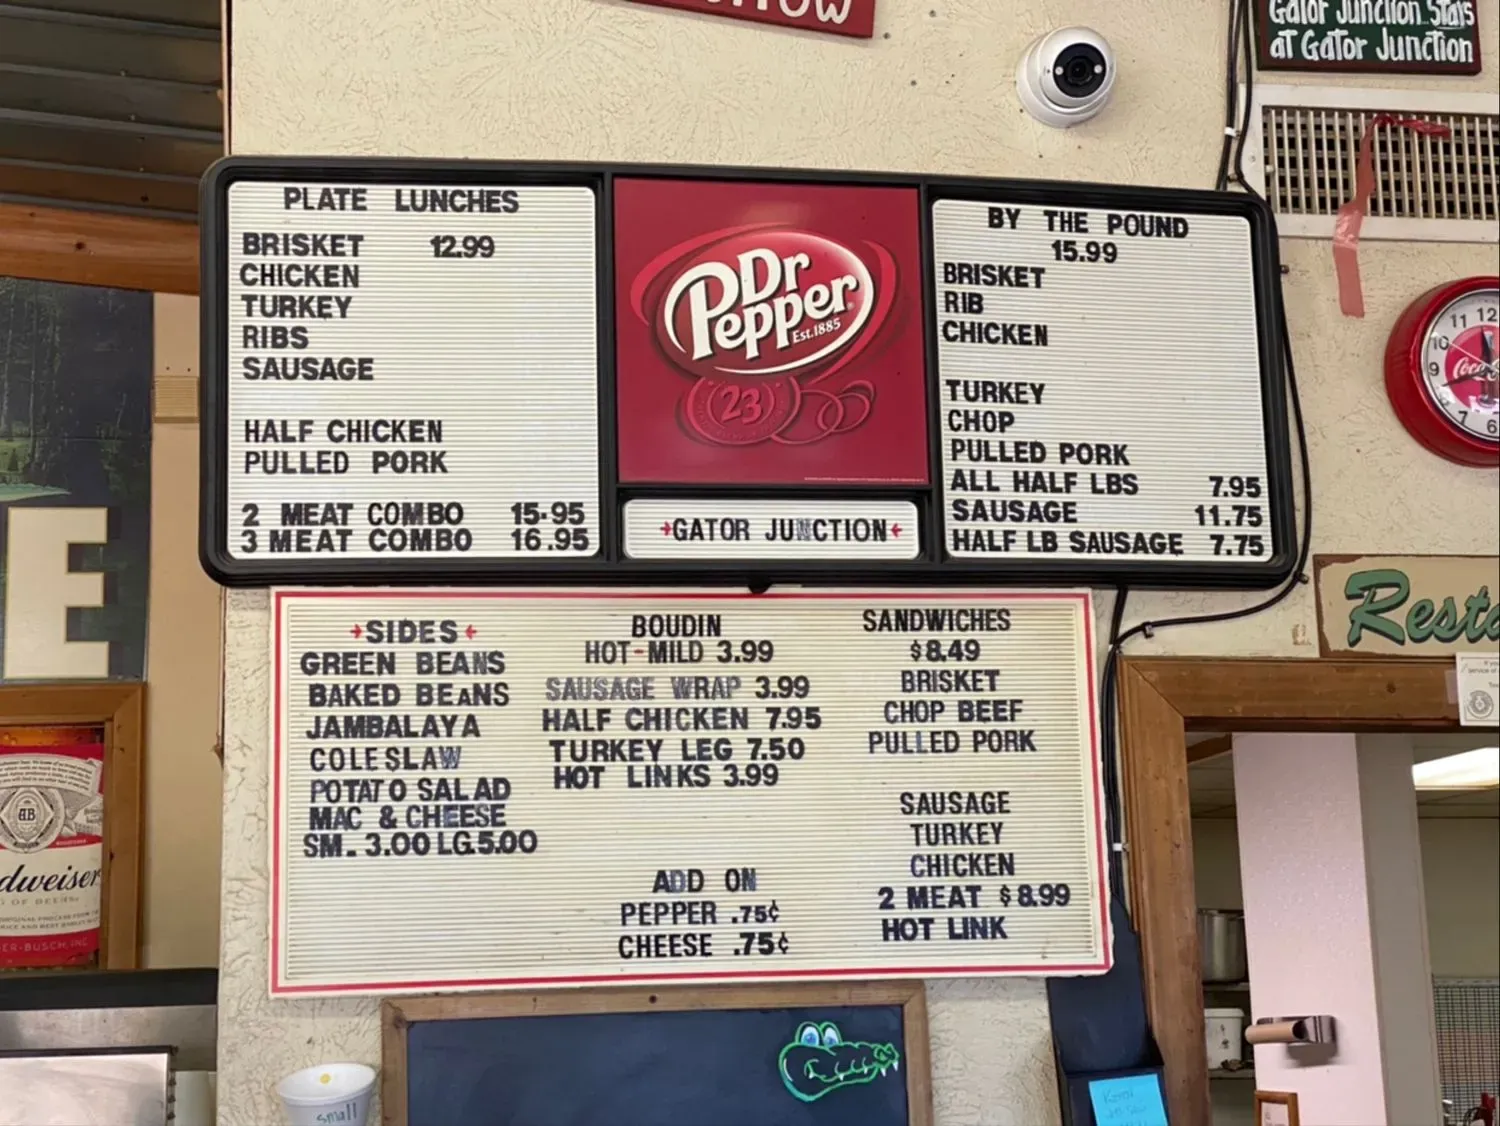 Gator Junction Stays
at Gator Junction
PLATE LUNCHES
BRISKET 12.99
CHICKEN
TURKEY
RIBS
SAUSAGE
HALF CHICKEN
PULLED PORK
2 MEAT COMBO 15.95
3 MEAT COMBO 16.95
Dr
Pepper
Est.1885
23
GATOR JUNCTION
BY THE POUND
15.99
BRISKET
RIB
CHICKEN
TURKEY
CHOP
PULLED PORK
ALL HALF LBS 7.95
SAUSAGE 11.75
HALF LB SAUSAGE 7.75
SIDES
GREEN BEANS
BAKED BEANS
JAMBALAYA
COLESLAW
POTATO SALAD
MAC & CHEESE
SM. 3.00 LG.5.00
BOUDIN
HOT-MILD 3.99
SAUSAGE WRAP 3.99
HALF CHICKEN 7.95
TURKEY LEG 7.50
HOT LINKS 3.99
ADD ON
PEPPER .75¢
CHEESE .75¢
SANDWICHES
$8.49
BRISKET
CHOP BEEF
PULLED PORK
SAUSAGE
TURKEY
CHICKEN
2 MEAT $8.99
HOT LINK
11 12
10
9
7 6
E
AB
dweiser
ER-BUSCH, INC
small